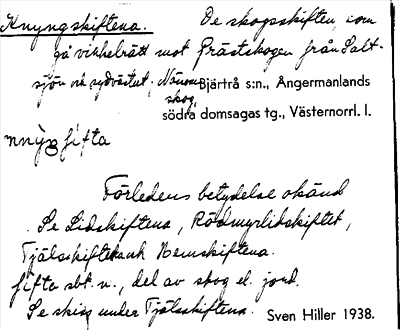 Knyngskiftena. De skogsskiften, som
gå vinkelrätt mot Prästskogen från Salt-
sjön och sydvästut, Nänsm
skog. Bjärtrå s:n., Ångermanlands
södra domsagas tg., Västernorrl. l.
Förledens betydelse okänd
Se Lidskiftena, Rödmyrlidskiftet,
Tjälsskiftena och Hemskiftena.
sbt. n., del av skog el. jord.
Se skiss under Tjälsskiftena. Sven Hiller 1938.